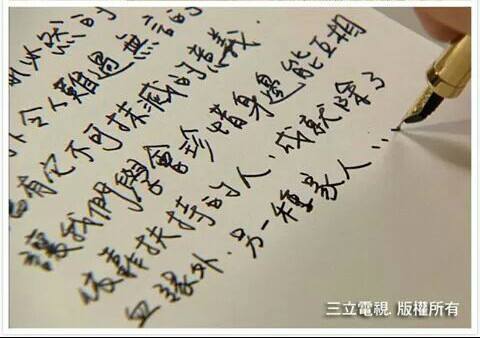 必然的
令人難過無言的
有它不可抹滅的意義.
讓我們學會珍惜身邊能互相
依靠扶持的人,成就除了
血緣外.另一種家人...
三立電視. 版權所有